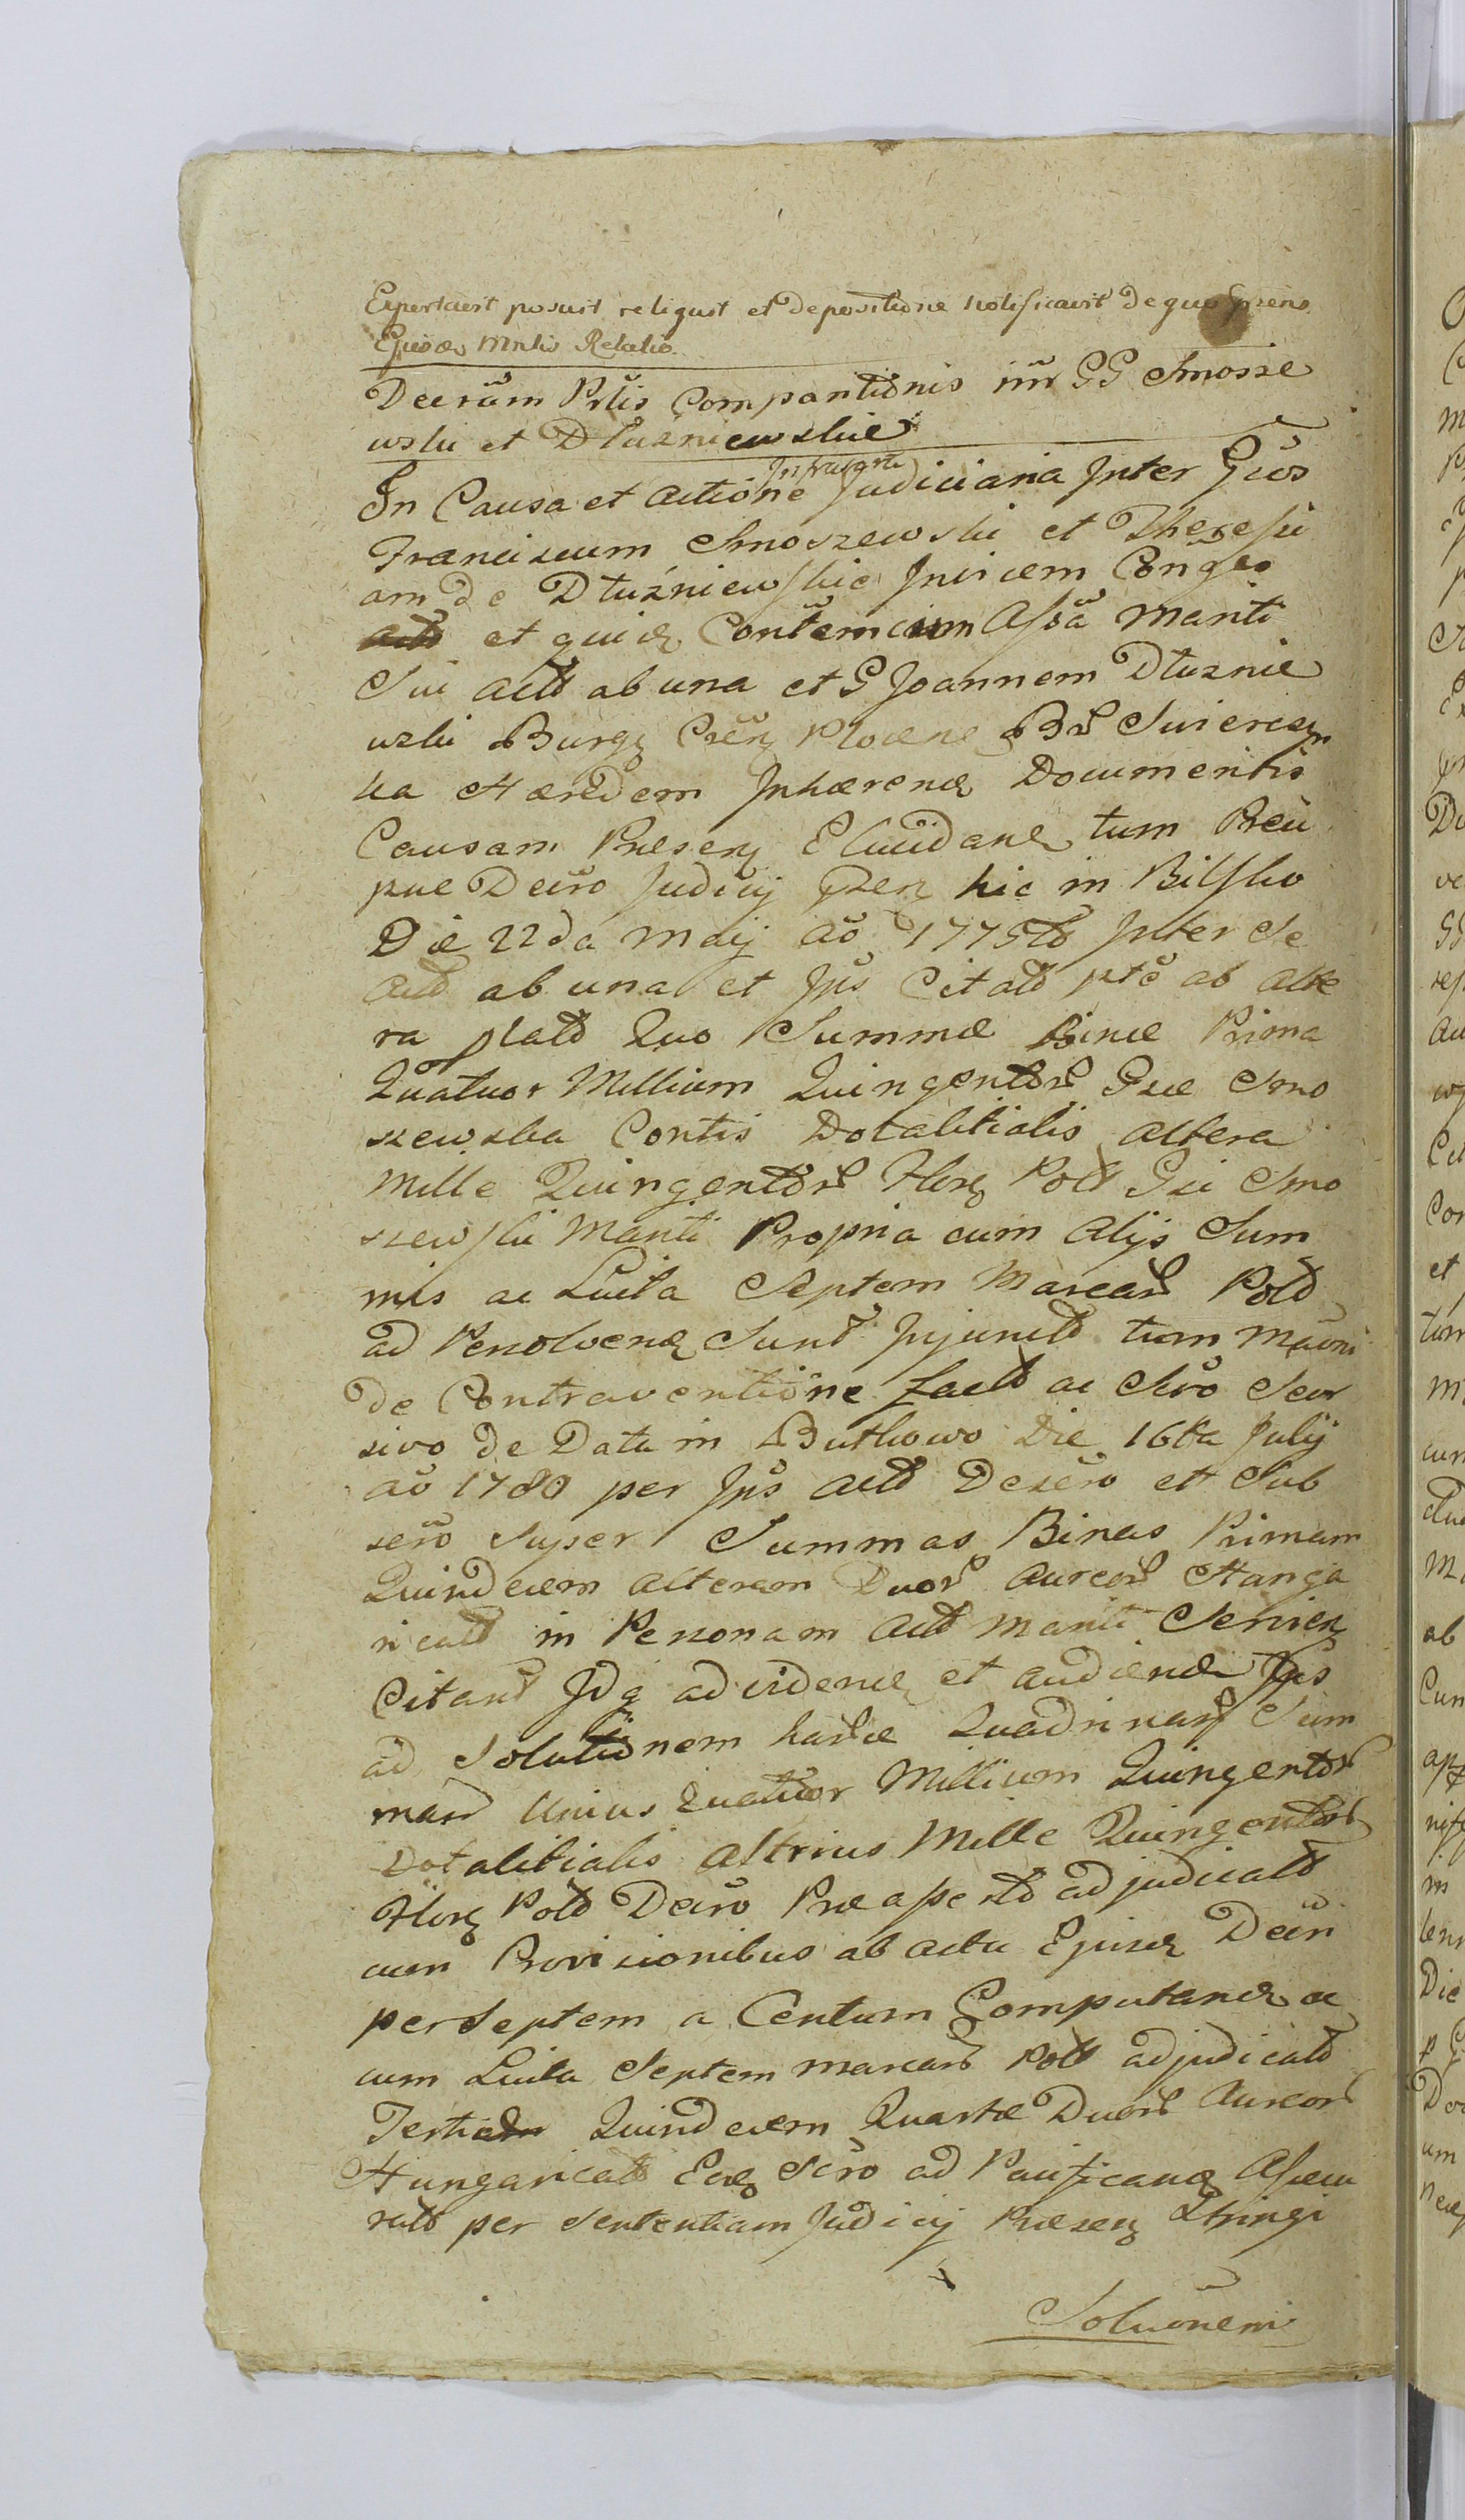 Expertiert posuit reliquit et depositione notificavit de quo prens
Ejusdę Mntis Relatio.
Decrãm Prtis Compantiõnis iñr GG Smosze
wski et Dłuzniewskie
In Causa et Actiõne Judiciaria Inter Gños
Franciscum Smoszewski et Theresi
am de Dłużniewskie Invicem Conges
et quidę Contemcium Assã Mariti
Sui Actt ab una et G Joannem Dłuznie
wski Burgę Cseñę Plocene Br Swiercza
ka Hæredem Inhærendę Documentis
Causam Præsenę Elucidanę tum Præci
pue Decro Judicij Pzenę hic in Bilsko
Die 22da Maij ao 1775tt Inter Se
Actt ab una et Ips Citatt pte ab alte
ra platt Quo Summæ Binæ Prima
Quatuor Millium Quingenttr Gsæ Smo
szewska Contis Dotalitialis altera
Mille Quingenttr Florę Poltt Gsi Smo
szewski Mariti Propria cum Alijs Sum
mis ac Luita Septem Marcar Poltt
ad Persolvendę Sunt Injunctt tum
de Contraventiõne factt ac Scro Scor
sivo de Data in Buthowo Die 16ta Julij
ao 1780 per Ips Actt Desero et Sub
sero Super Summas Binas Primam
Quindecem alteram Duor Aureor Hunga
ricatt in Personam Actt Mariti Servienę
Citant Idq ad videndę et audiendę Ips
ad Solutiõnem harce Quadrinar Sum
mar Unius Quatuor Millium Quingenttr
Dotalitialis Altrius Mille Quingenttr
Florę Poltt Decro Præapertt adjudicatt
cum Provisionibus ab actu Ejusdę Decri
per Septem a Centum Computandę ac
cum Luita Septem marcar Poltt adjudicatt
Tertiæ Quindecem Quartæ Duor Aureor
Hungaricatt Eodę Scro ad Pacificandę Assecu
ratt per Sententiam Judicij Præsenę Stringi
Soluõnem